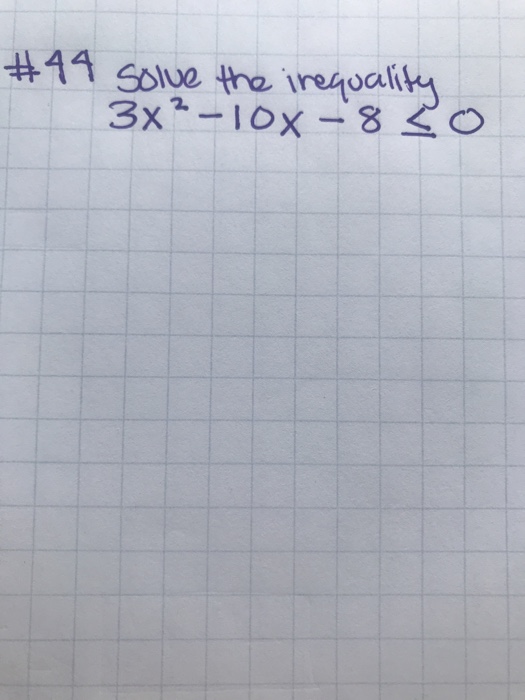 #44 Solve the inequality
3x² - 10x - 8 ≤ 0